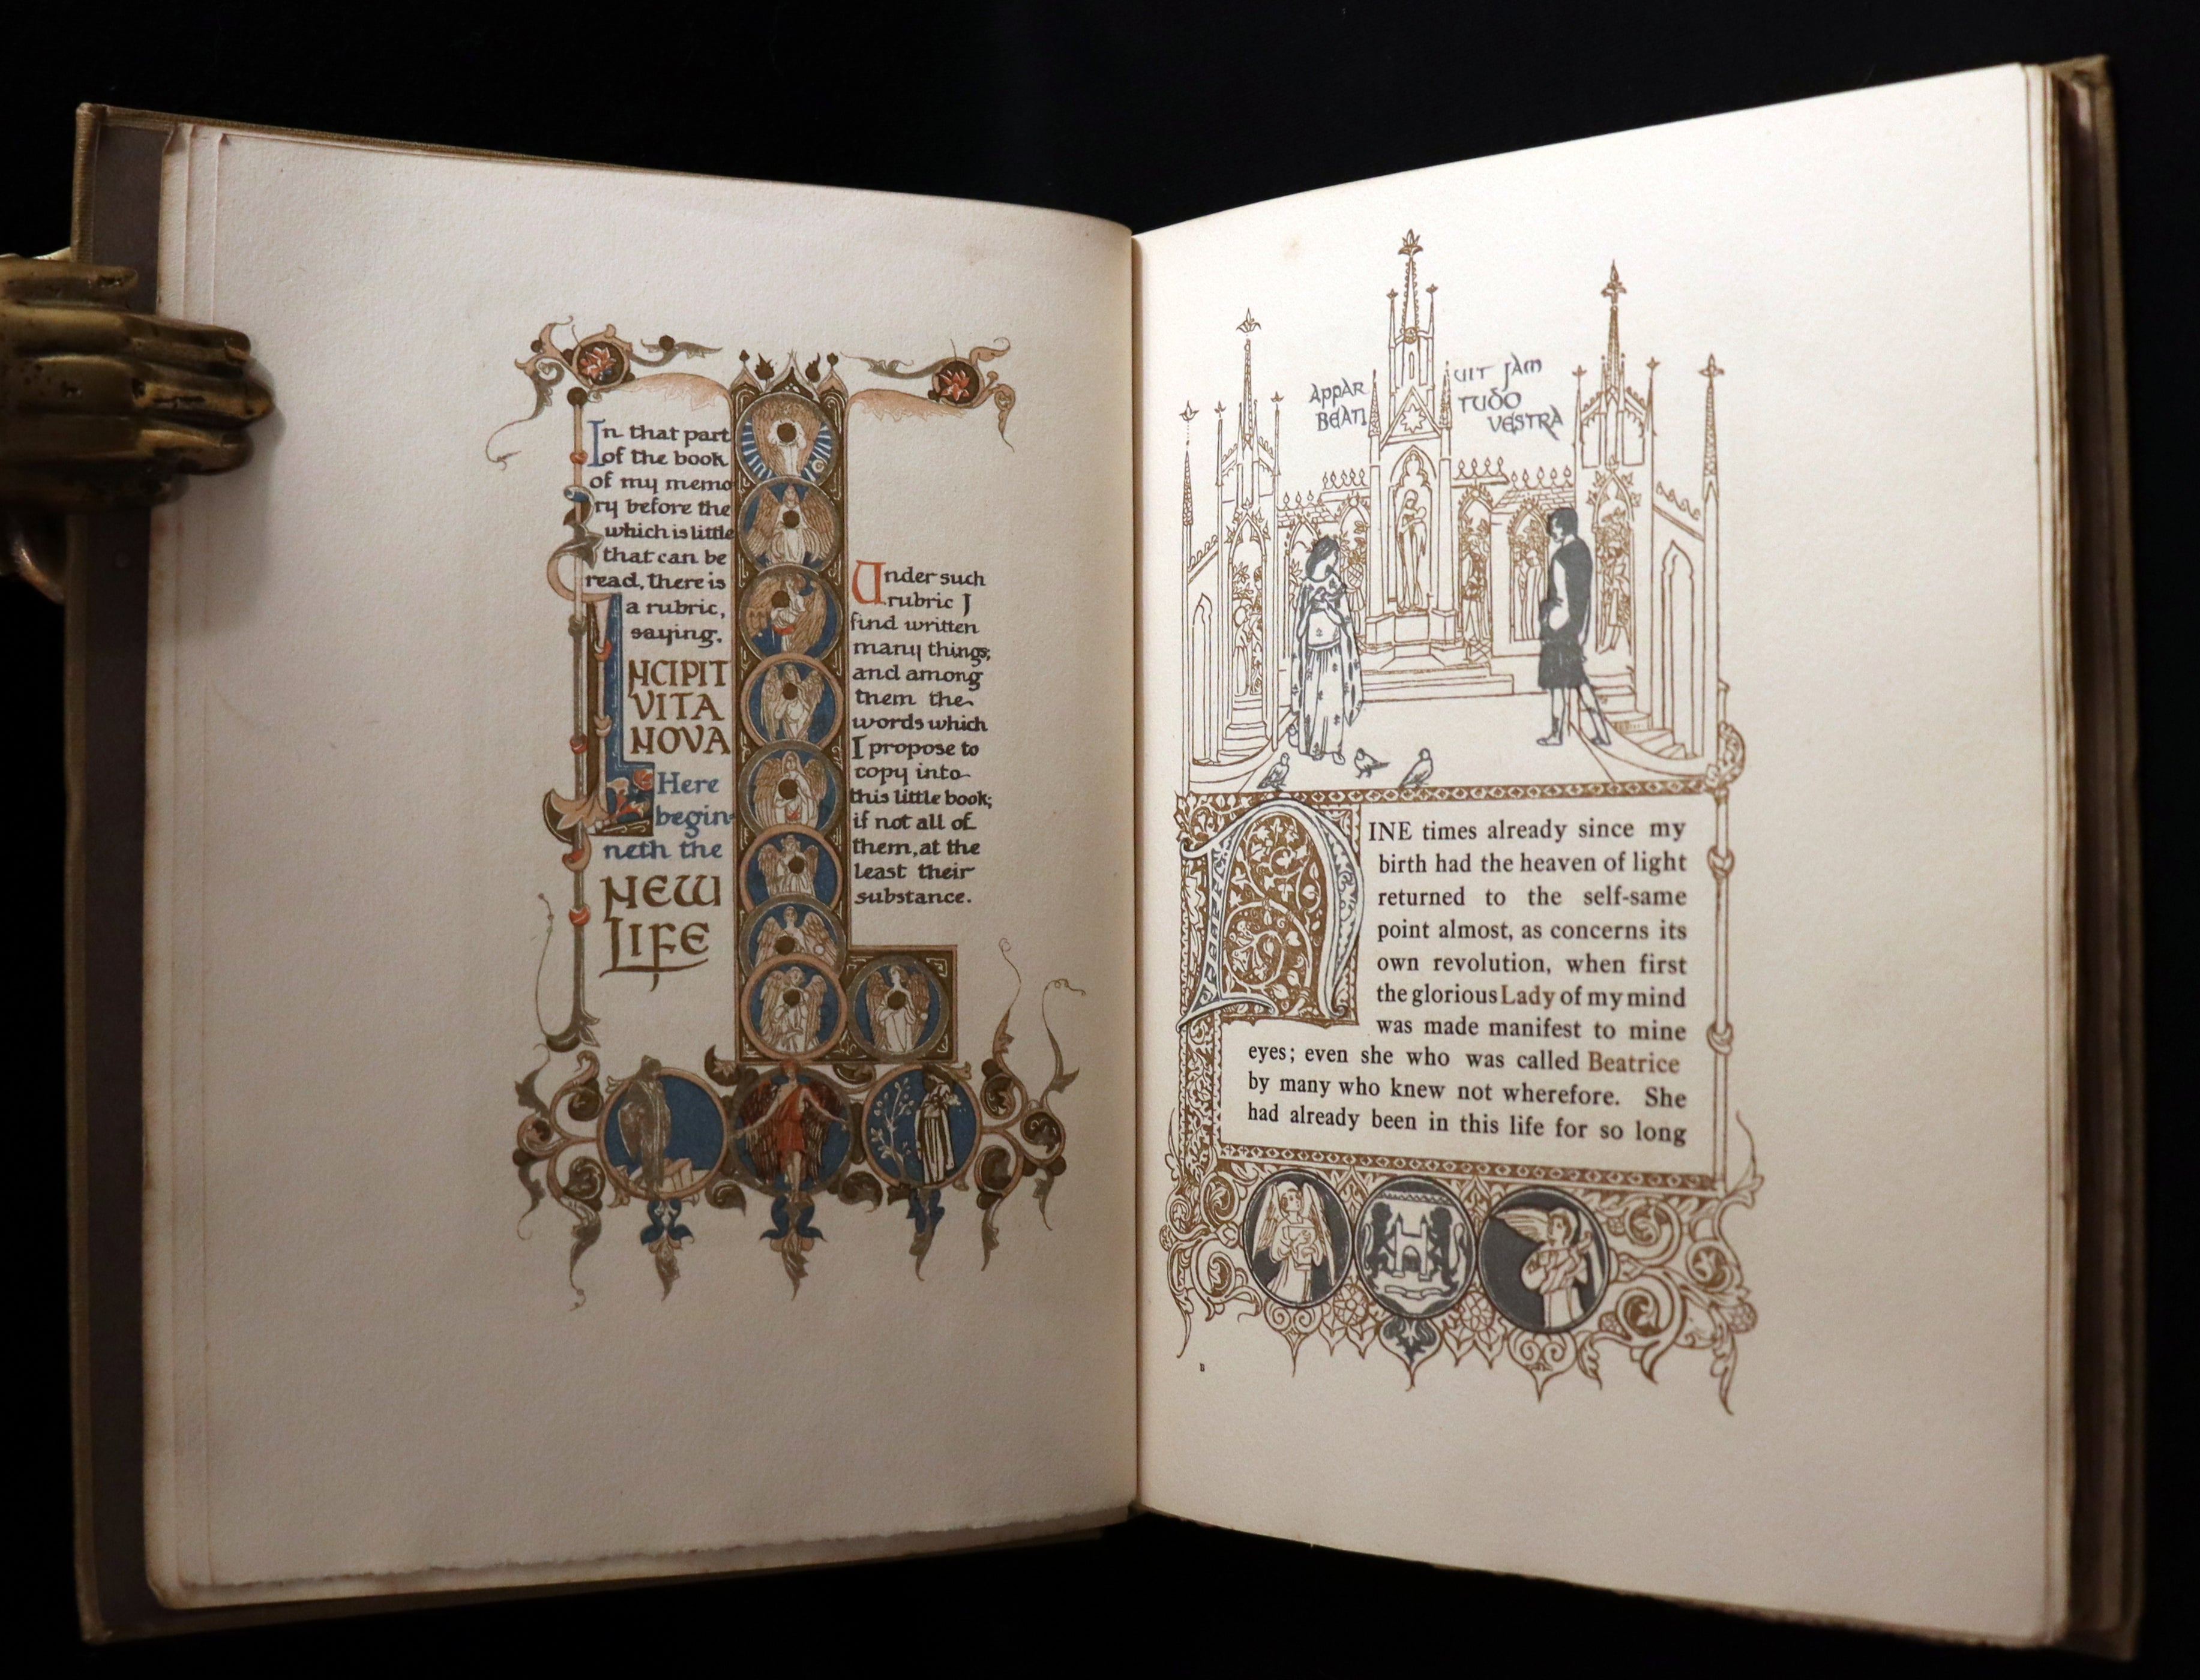 In that part
of the book
of my memo
ry before the
which is little
that can be
read, there is
a rubric,
saying.
INCIPIT
VITA
NOVA
Here
begin-
neth the
NEW
LIFE
Under such
rubric I
find written
many things;
and among
them the
words which
I propose to
copy into
this little book;
if not all of
them, at the
least their
substance.
APPARUIT JAM
BEATITUDO
VESTRA
NINE times already since my
birth had the heaven of light
returned to the self-same
point almost, as concerns its
own revolution, when first
the glorious Lady of my mind
was made manifest to mine
eyes; even she who was called Beatrice
by many who knew not wherefore. She
had already been in this life for so long
B